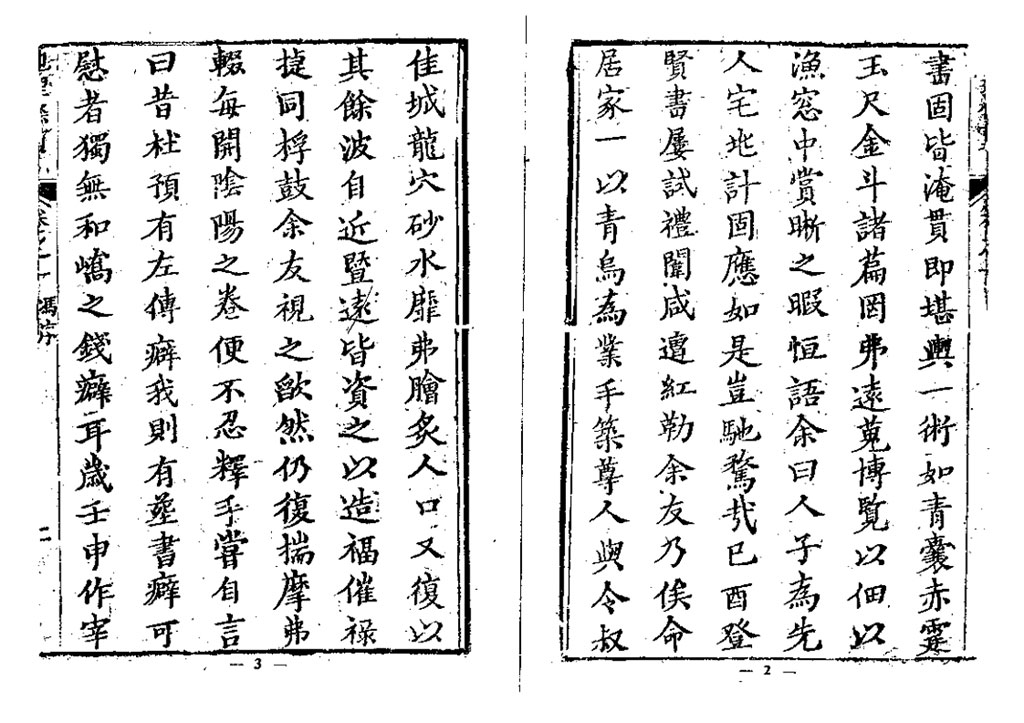 書固皆淹貫即堪輿一術如青囊赤霆
玉尺金斗諸篇罔弗遠蒐博覽以佃以
漁窓中賞晰之暇恒語余曰人子為先
人宅地計固應如是豈馳騖㢤己酉登
賢書屢試禮闈咸遭紅勒余友乃俟命
居家一以青烏為業手築尊人與令叔
— 2 —
佳城龍穴砂水靡弗膾炙人口又復以
其餘波自近曁遠皆資之以造福催祿
㨗同桴鼓余友視之歉然仍復揣摩弗
輟每開陰陽之卷便不忍釋手嘗自言
曰昔杜預有左傳癖我則有塟書癖可
慰者獨無和嶠之錢癖耳歲壬申作宰
馮序
二
— 3 —